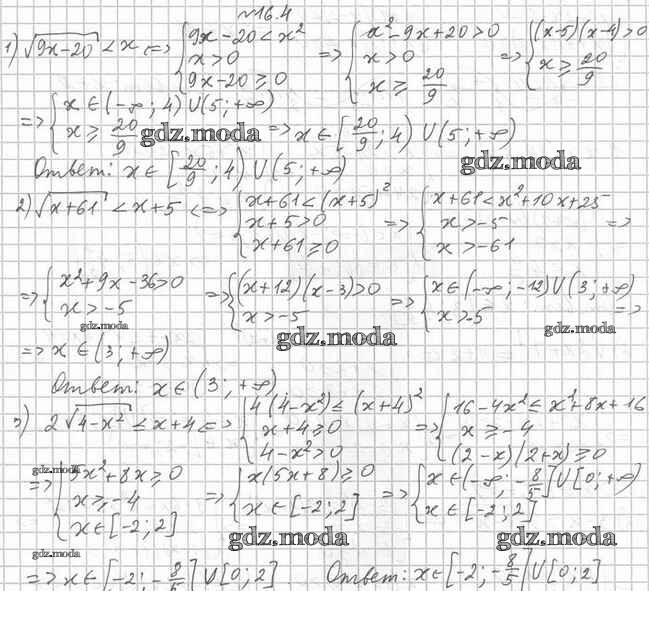 №16.4
1) √(9x-20) < x <=> { 9x-20 < x² ; x > 0 ; 9x-20 ≥ 0 => { x²-9x+20 > 0 ; x > 0 ; x ≥ 20/9 => { (x-5)(x-4) > 0 ; x ≥ 20/9
=> { x ∈ (-∞; 4) U (5; +∞) ; x ≥ 20/9 => x ∈ [20/9; 4) U (5; +∞)
gdz.moda
gdz.moda
Ответ: x ∈ [20/9; 4) U (5; +∞)
2) √(x+61) < x+5 <=> { x+61 < (x+5)² ; x+5 > 0 ; x+61 ≥ 0 => { x+61 < x²+10x+25 ; x > -5 ; x > -61 =>
=> { x²+9x-36 > 0 ; x > -5 => { (x+12)(x-3) > 0 ; x > -5 => { x ∈ (-∞; -12) U (3; +∞) ; x > -5 =>
gdz.moda
gdz.moda
gdz.moda
=> x ∈ (3; +∞)
Ответ: x ∈ (3; +∞)
3) 2√(4-x²) ≤ x+4 <=> { 4(4-x²) ≤ (x+4)² ; x+4 ≥ 0 ; 4-x² > 0 => { 16-4x² ≤ x²+8x+16 ; x ≥ -4 ; (2-x)(2+x) ≥ 0
gdz.moda
=> { 5x²+8x ≥ 0 ; x ≥ -4 ; x ∈ [-2; 2] => { x(5x+8) ≥ 0 ; x ∈ [-2; 2] => { x ∈ (-∞; -8/5] U [0; +∞) ; x ∈ [-2; 2]
gdz.moda
gdz.moda
gdz.moda
=> x ∈ [-2; -8/5] U [0; 2] Ответ: x ∈ [-2; -8/5] U [0; 2]